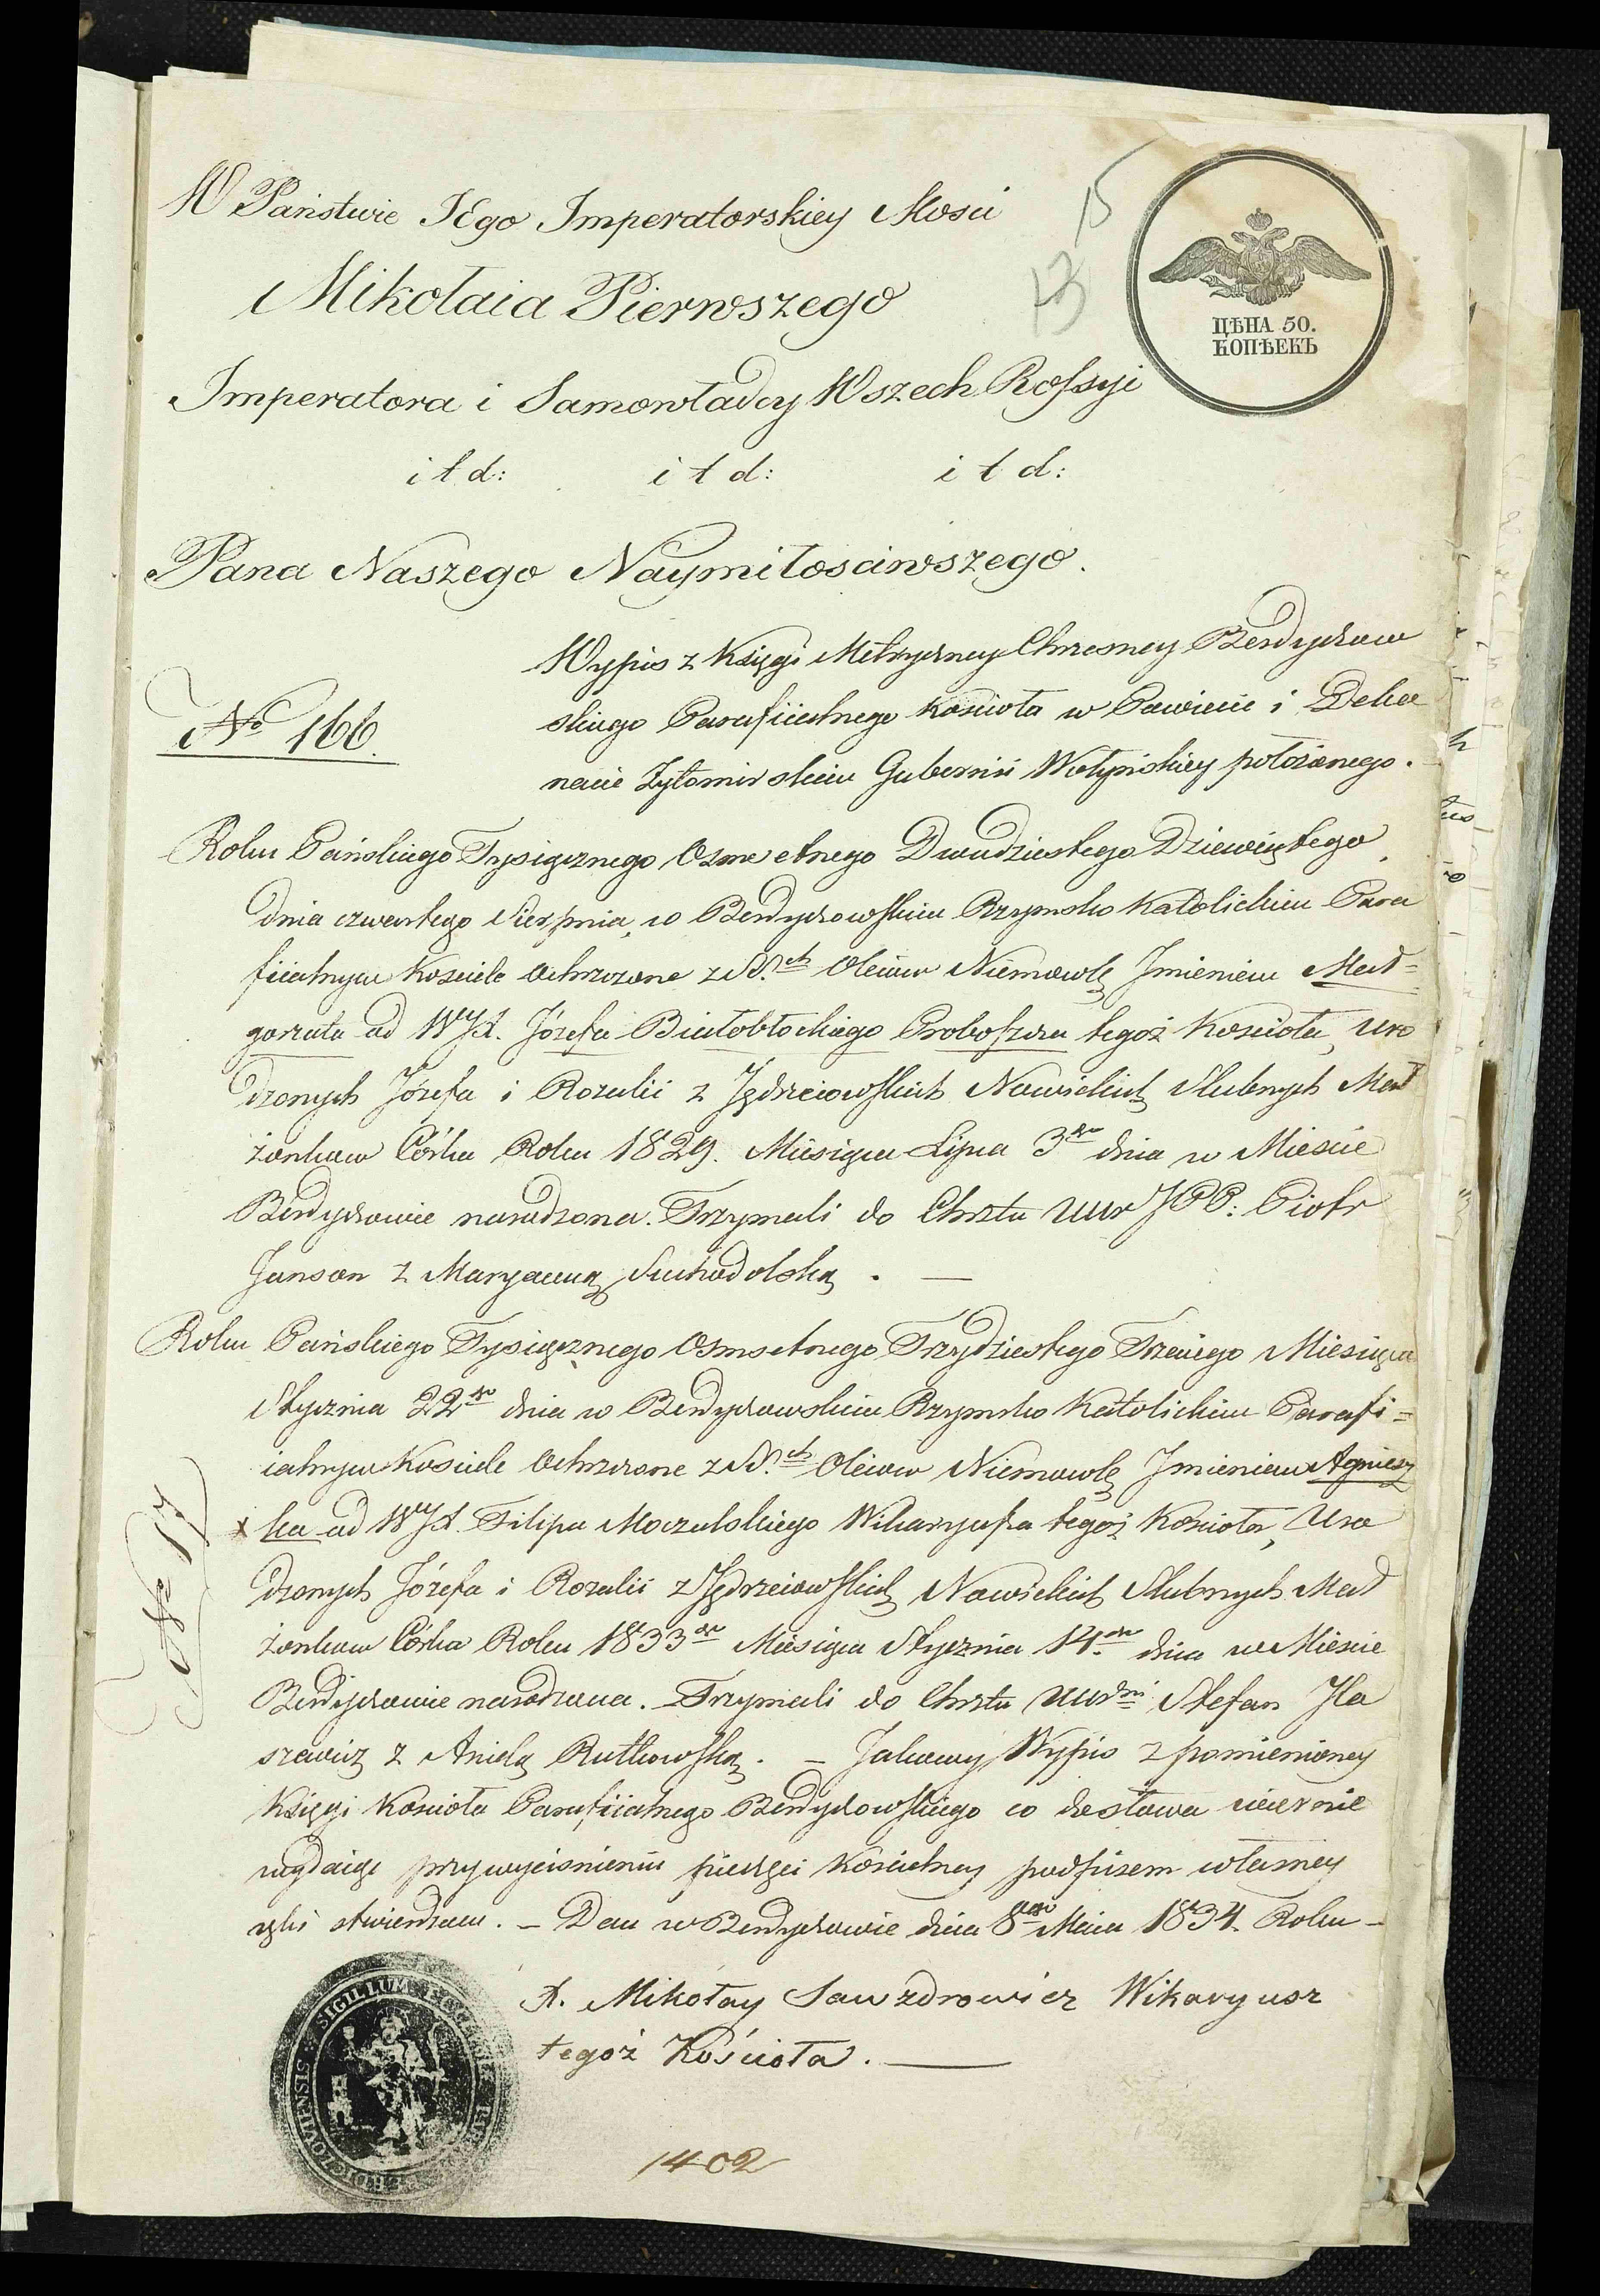 W Państwie JEgo Imperatorskiey Mosci
15
13
Mikołaia Pierwszego
ЦѢНА 50.
КОПѢЕКЪ
Imperatora i Samowładcy Wszech Rossyi
i t d: i t d: i t d:
Pana Naszego Naymiłosciwszego.
Wypis z Księgi Metryczney Chrzesney Berdyczow
skiego Parafiialnego Kościoła w Powiecie i Deka
No 166.
nacie Zytomirskim Gubernii Wołyńskiey położonego.
Roku Pańskiego Tysiącznego Osmsetnego Dwudziestego Dziewiątego
dnia czwartego Sierpnia, w Berdyczowskim Rzymsko Katolickim Para
fiialnym Kosciele Ochrzczone z SS.ch Oleiow Niemowlę Jmieniem Mał=
gorzata od WJX. Józefa Białobłockiego Proboszcza tegoż Kościoła, Uro
dzonych Józefa i Rozalii z Jędrzeiowskich Nowickich Slubnych Mał
żonkow Córka Roku 1829. Miesiąca Lipca 3go dnia w Miescie
Berdyczowie narodzona. Trzymali do Chrztu Uur JPP: Piotr
Janson z Maryanną Suchodolską. —
Roku Pańskiego Tysiącznego Osmsetnego Trzydziestego Trzeciego Miesiąca
Stycznia 22go dnia w Berdyczowskim Rzymsko Katolickim Parafi=
ialnym Kosciele Ochrzczone z SS.ch Oleiow Niemowlę Jmieniem Agniesz
x ka od WJX. Filipa Moczulskiego Wikaryusza tegoż Kościoła, Uro
dzonych Józefa i Rozalii z Jędrzeiowskich Nowickich Slubnych Mał
żonkow Córka Roku 1833go Miesiąca Stycznia 14go dnia w Miescie
Berdyczowie narodzona. Trzymali do Chrztu Stefan Ila
szewicz z Anielą Rutkowską. — Jakowy Wypis z pomienioney
Księgi Kościoła Parafiialnego Berdyczowskiego co do słowa wiernie
wydaię przy wyciśnieniu pieczęci Kościelney podpisem własney
ręki stwierdzam. — Dan w Berdyczowie dnia 8go Maia 1834. Roku —
X. Mikołay Sawzdrowicz Wikaryusz
tegoż Kościoła. —
SIGILLUM
1402